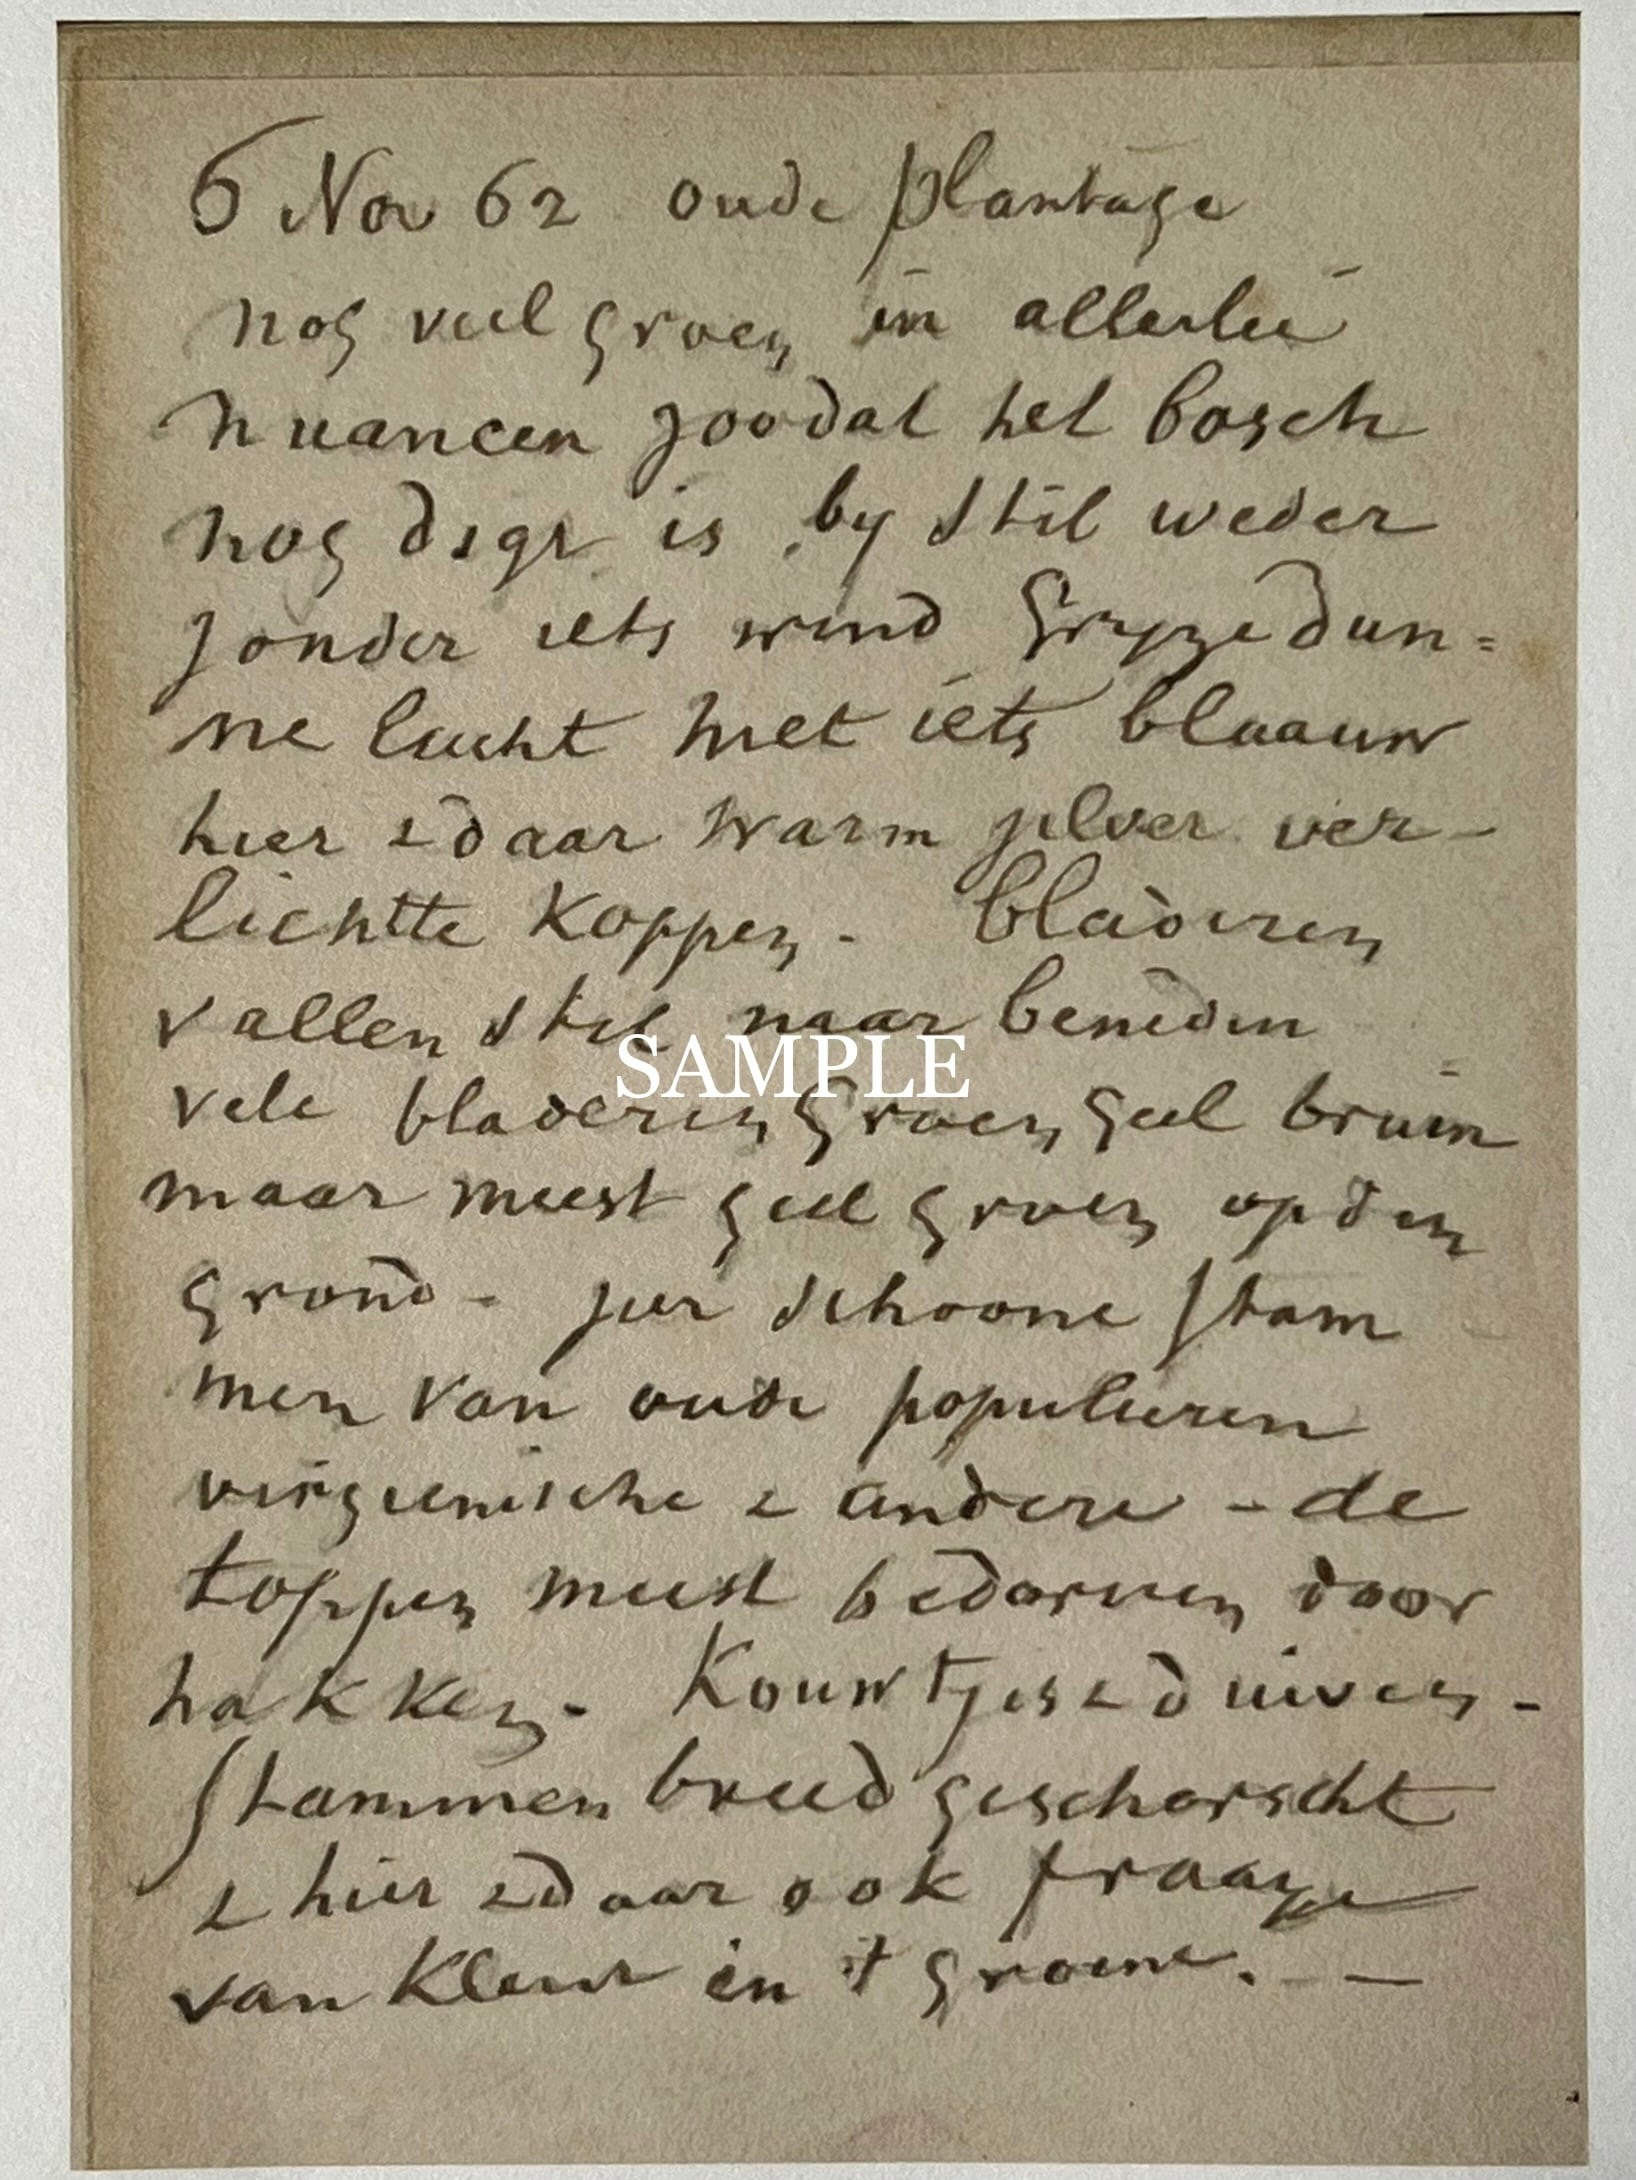 6 Nov 62 oude plantage
nog veel groen in allerlei
nuancen zoodat het bosch
nog digt is by stil weder
zonder iets wind Gryze dun=
ne lucht met iets blaauw
hier & daar warm zilver ver-
lichtte koppen - bladeren
vallen stil naar beneden
SAMPLE
vele bladeren groen geel bruin
maar meest geel groen op den
grond - zeer schoone stam
men van oude populieren
virgienische & andere - de
toppen meest bedorven door
hakken - Kouwtjes & duiven -
stammen breed geschorscht
& hier & daar ook fraaye
van kleur in 't groene. —